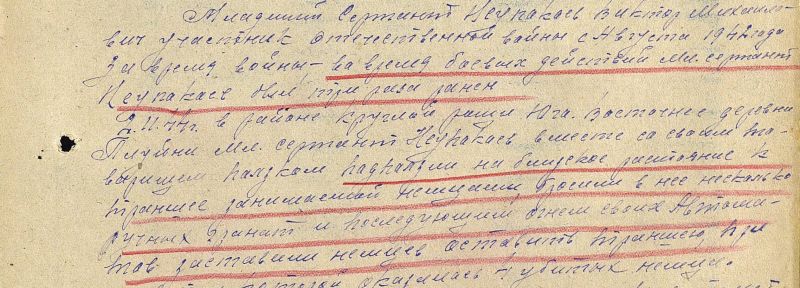 Младший Сержант Неупакаев Виктор Михайло-
вич участник отечественной войны с Августа 1942 года
За время войны – во время боевых действий мл. сержант
Неупакаев был три раза ранен
2.11.44г. в районе круглой рощи Юга. Восточнее деревни
мл. сержант Неупакаев вместе со своим то-
варищем подползли на близкое растояние к
траншее занимаемой немцами бросили в нее несколько
ручных гранат и последующим огнем своих Автома-
тов заставили немцев оставить траншею при
которой оказалось 4 убитых немца.